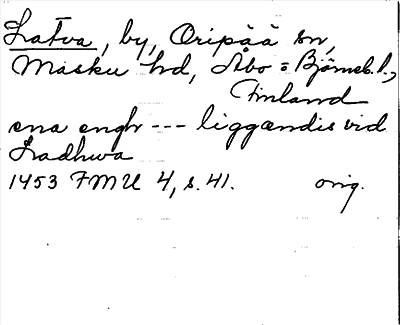 Latva, by, Oripää sn,
Masku hd, Åbo = Björneb. l.,
Finland
ena engh --- liggandis vid
Ladhwa
1453 FMU 4, s. 41. orig.